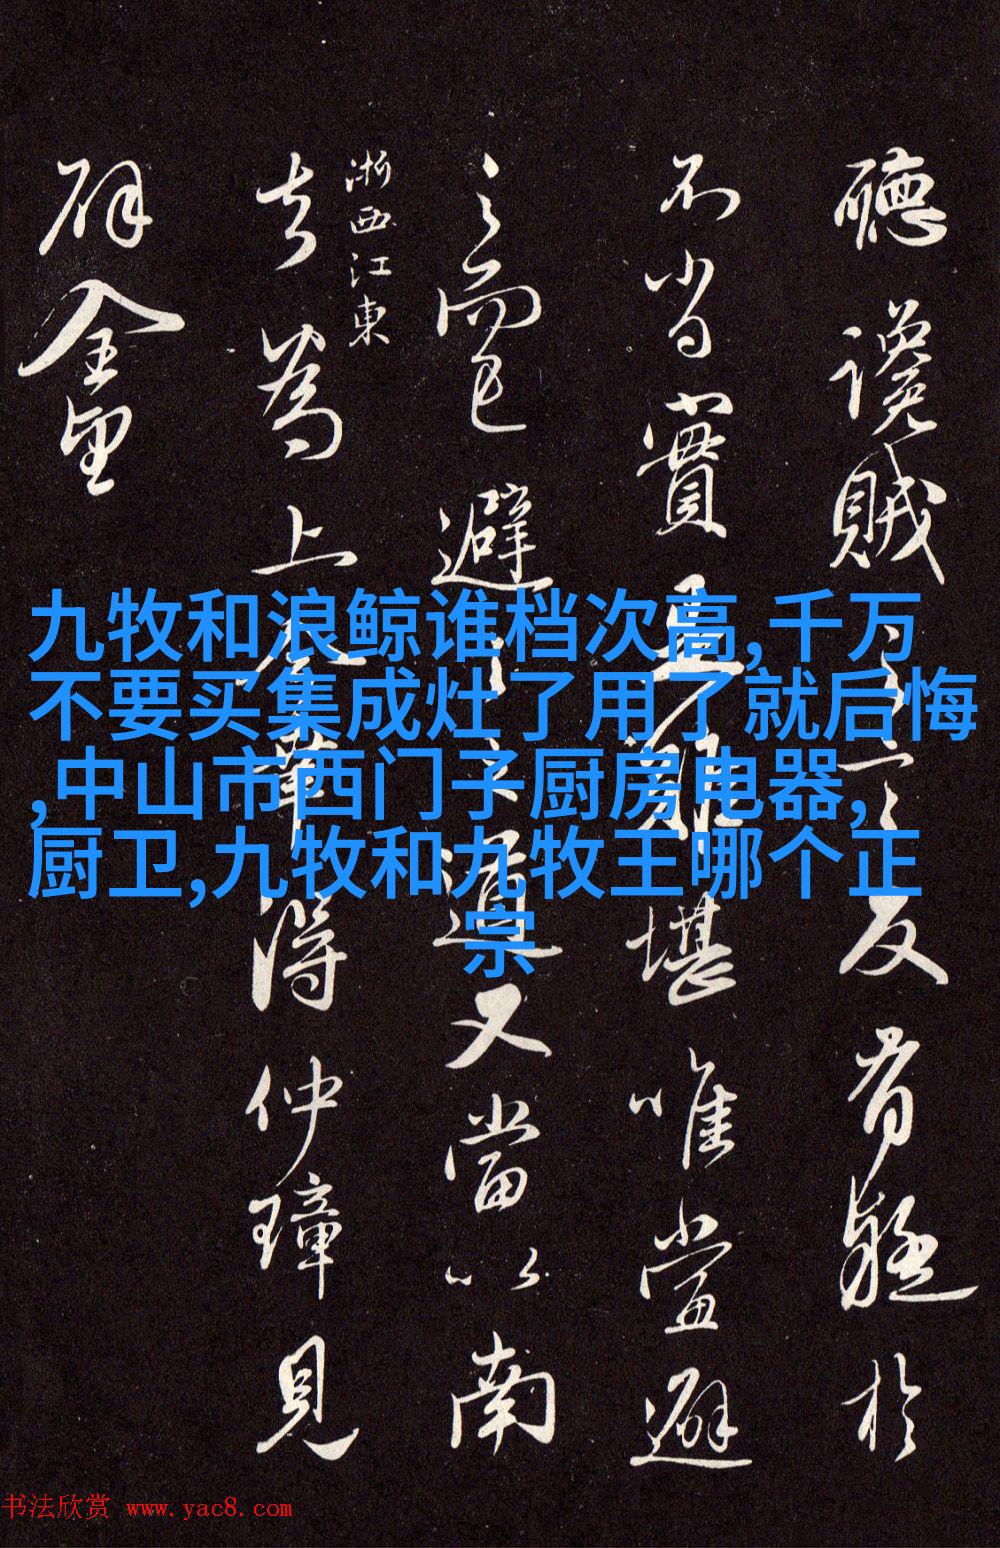 聽讒賊之言反有疑於
不肖實難堪唯當避
之而已避之之道又當以南
去為上
浙西江東
得仲璋見
九牧和浪鲸谁档次高,千万
不要买集成灶了用了就后悔
,中山市西门子厨房电器,
厨卫,九牧和九牧王哪个正
宗
书法欣赏 www.yac8.com